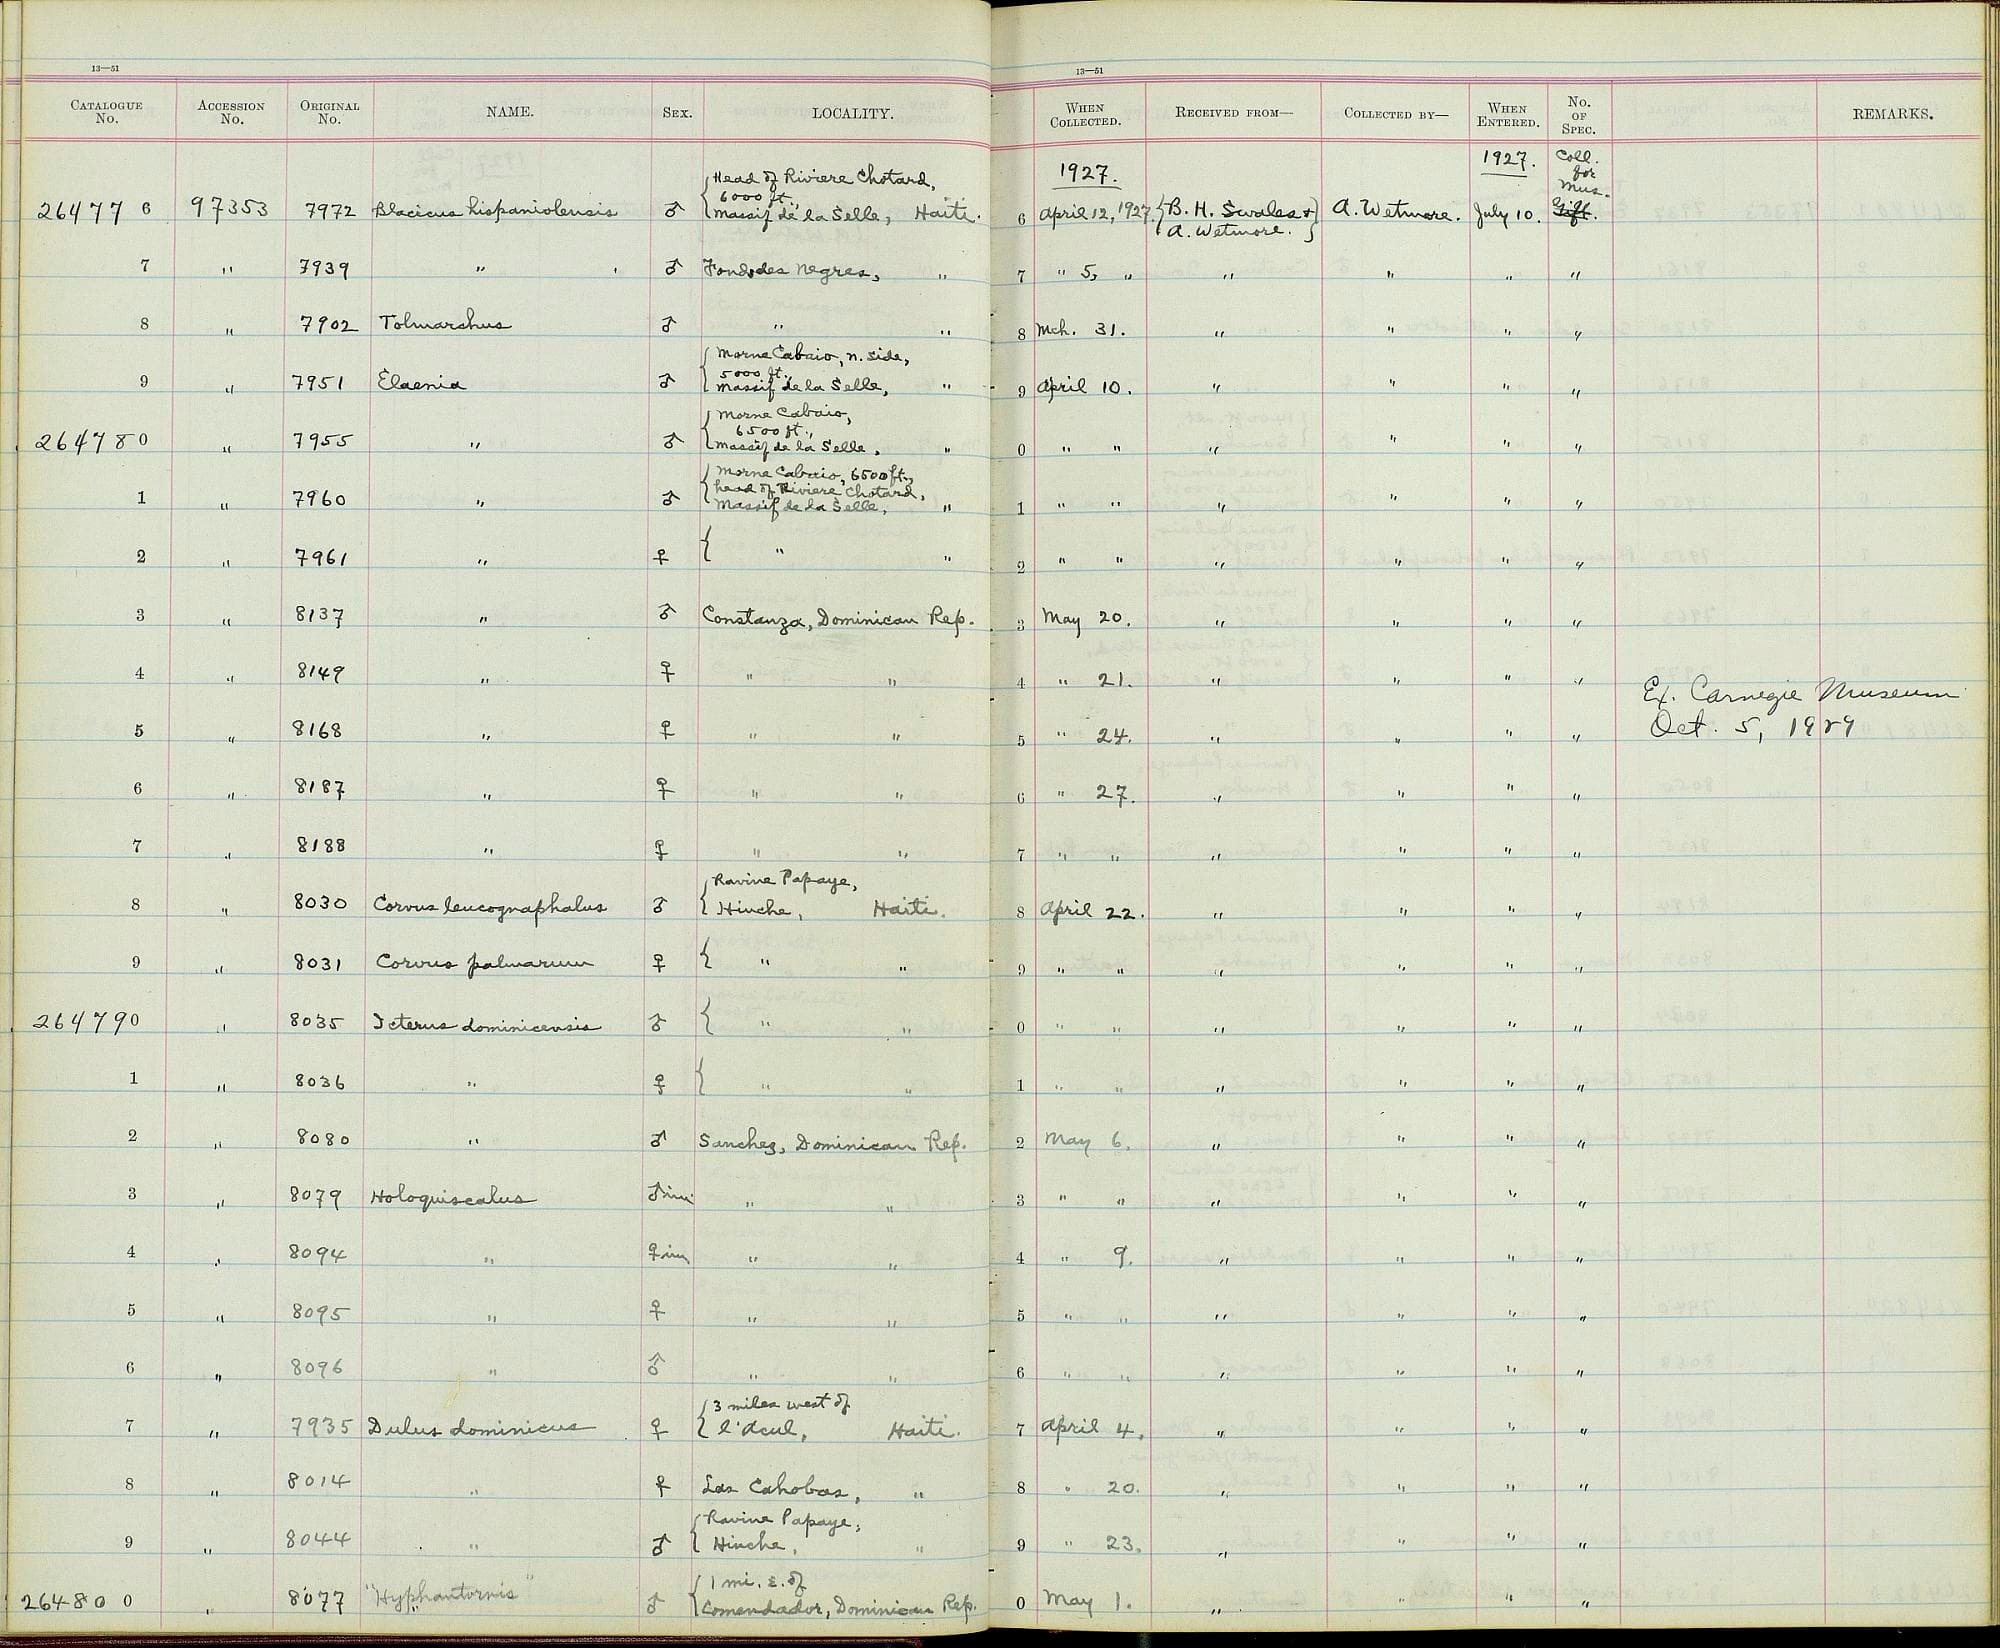 13—51
CATALOGUE No. ACCESSION No. ORIGINAL No. NAME. SEX. LOCALITY.
Head of Riviere Chotard,
6000 ft.,
26477 6 97353 7972 Blacicus hispaniolensis ♂ Massif de la Selle, Haiti.
7 " 7939 " ♂ Fond des Negres, "
8 " 7902 Tolmarchus ♂ " "
Morne Cabaio, n. side,
5000 ft.,
9 " 7951 Elaenia ♂ Massif de la Selle, "
Morne Cabaio,
6500 ft.,
26478 0 " 7955 " ♂ Massif de la Selle, "
Morne Cabaio, 6500 ft.,
head of Riviere Chotard,
1 " 7960 " ♂ Massif de la Selle, "
2 " 7961 " ♀ " "
3 " 8137 " ♂ Constanza, Dominican Rep.
4 " 8149 " ♀ " "
5 " 8168 " ♀ " "
6 " 8187 " ♀ " "
7 " 8188 " ♀ " "
Ravine Papaye,
8 " 8030 Corvus leucognaphalus ♂ Hinche, Haiti.
9 " 8031 Corvus palmarum ♀ " "
26479 0 " 8035 Icterus dominicensis ♂ " "
1 " 8036 " ♀ " "
2 " 8080 " ♂ Sanchez, Dominican Rep.
3 " 8079 Holoquiscalus ♂ im. " "
4 " 8094 " ♀ im " "
5 " 8095 " ♀ " "
6 " 8096 " ♂ " "
3 miles west of
7 " 7935 Dulus dominicus ♀ l'Acul, Haiti.
8 " 8014 " ♀ Las Cahobas, "
Ravine Papaye,
9 " 8044 " ♂ Hinche, "
1 mi. E. of
26480 0 " 8077 "Hyphantornis" ♂ Comendador, Dominican Rep.
13—51
WHEN COLLECTED. RECEIVED FROM— COLLECTED BY— WHEN ENTERED. No. OF SPEC. REMARKS.
1927. 1927. Coll.
for
Mus.
6 April 12, 1927. B. H. Swales & A. Wetmore. July 10. Gift.
A. Wetmore.
7 " 5, " " " " "
8 Mch. 31. " " " "
9 April 10. " " " "
0 " " " " " "
1 " " " " " "
2 " " " " " "
3 May 20. " " " "
4 " 21. " " " "
Ex. Carnegie Museum
Oct. 5, 1929
5 " 24. " " " "
6 " 27. " " " "
7 " " " " " "
8 April 22. " " " "
9 " " " " " "
0 " " " " " "
1 " " " " " "
2 May 6. " " " "
3 " " " " " "
4 " 9. " " " "
5 " " " " " "
6 " " " " " "
7 April 4. " " " "
8 " 20. " " " "
9 " 23. " " " "
0 May 1. " " " "